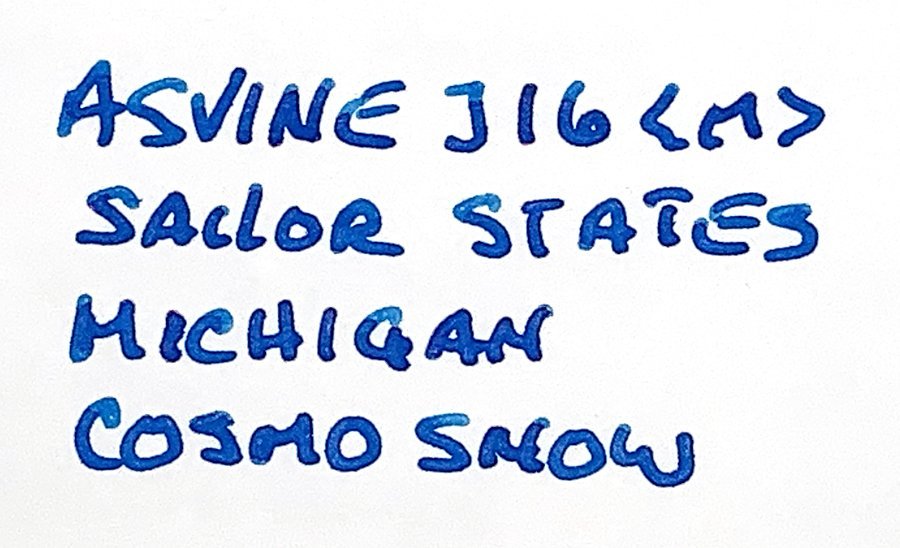 ASVINE J16 <M>
SAILOR STATES
MICHIGAN
COSMO SNOW